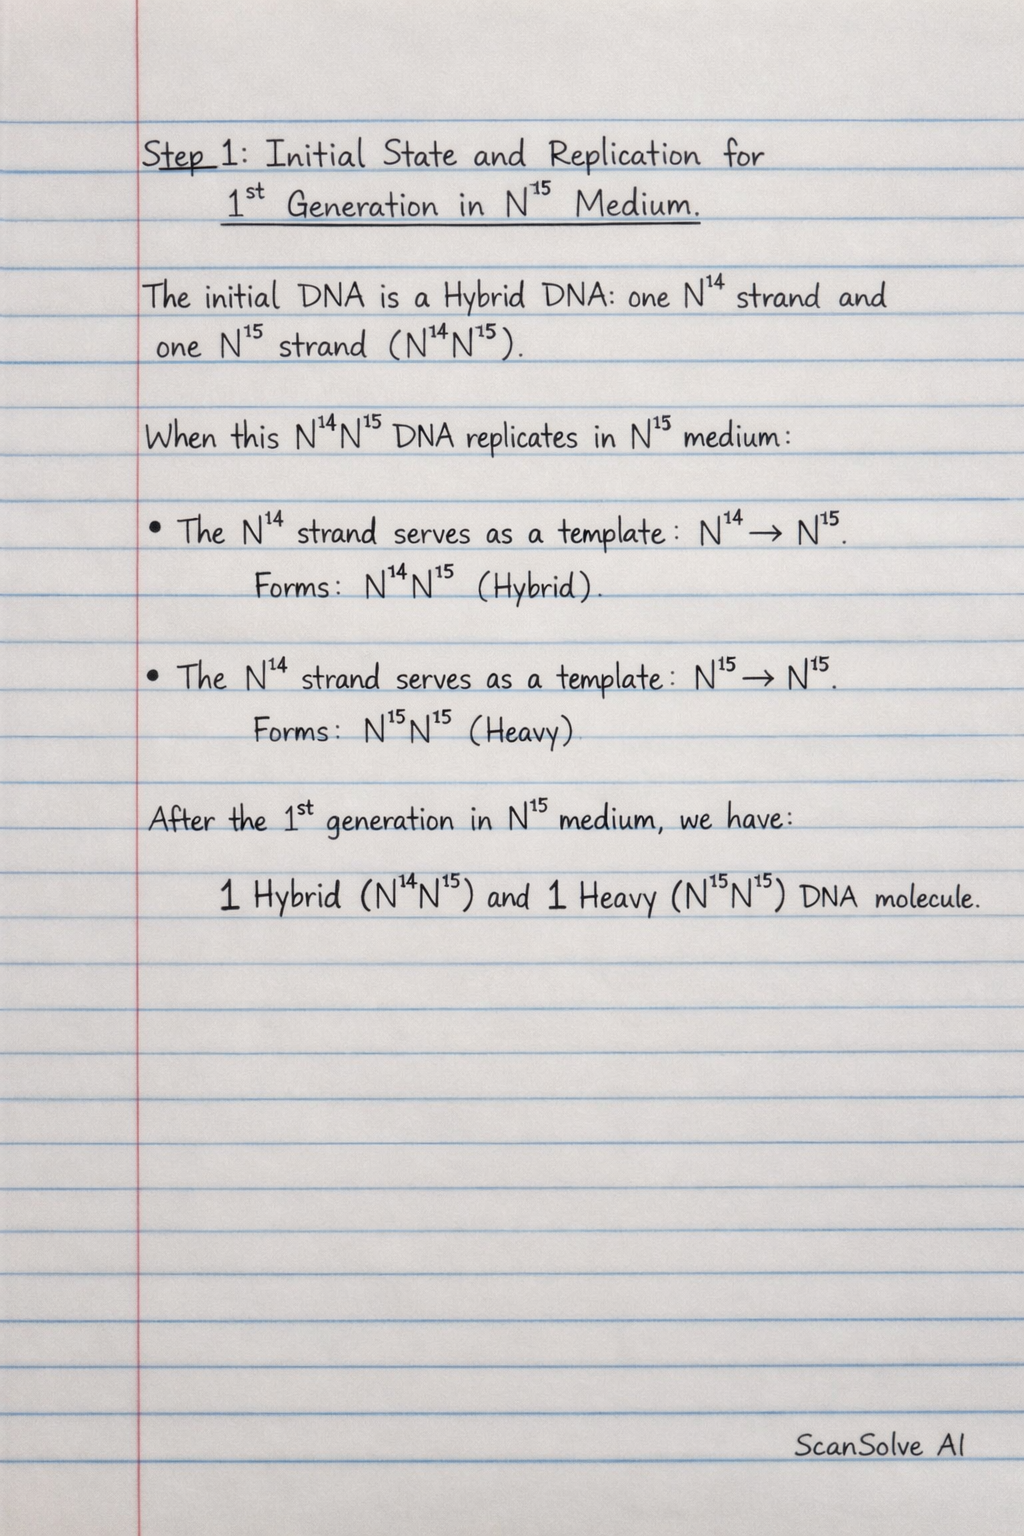 Step 1: Initial State and Replication for
1st Generation in N¹⁵ Medium.
The initial DNA is a Hybrid DNA: one N¹⁴ strand and
one N¹⁵ strand (N¹⁴N¹⁵).
When this N¹⁴N¹⁵ DNA replicates in N¹⁵ medium:
• The N¹⁴ strand serves as a template: N¹⁴ → N¹⁵.
Forms: N¹⁴N¹⁵ (Hybrid).
• The N¹⁴ strand serves as a template: N¹⁵ → N¹⁵.
Forms: N¹⁵N¹⁵ (Heavy)
After the 1st generation in N¹⁵ medium, we have:
1 Hybrid (N¹⁴N¹⁵) and 1 Heavy (N¹⁵N¹⁵) DNA molecule.
ScanSolve AI